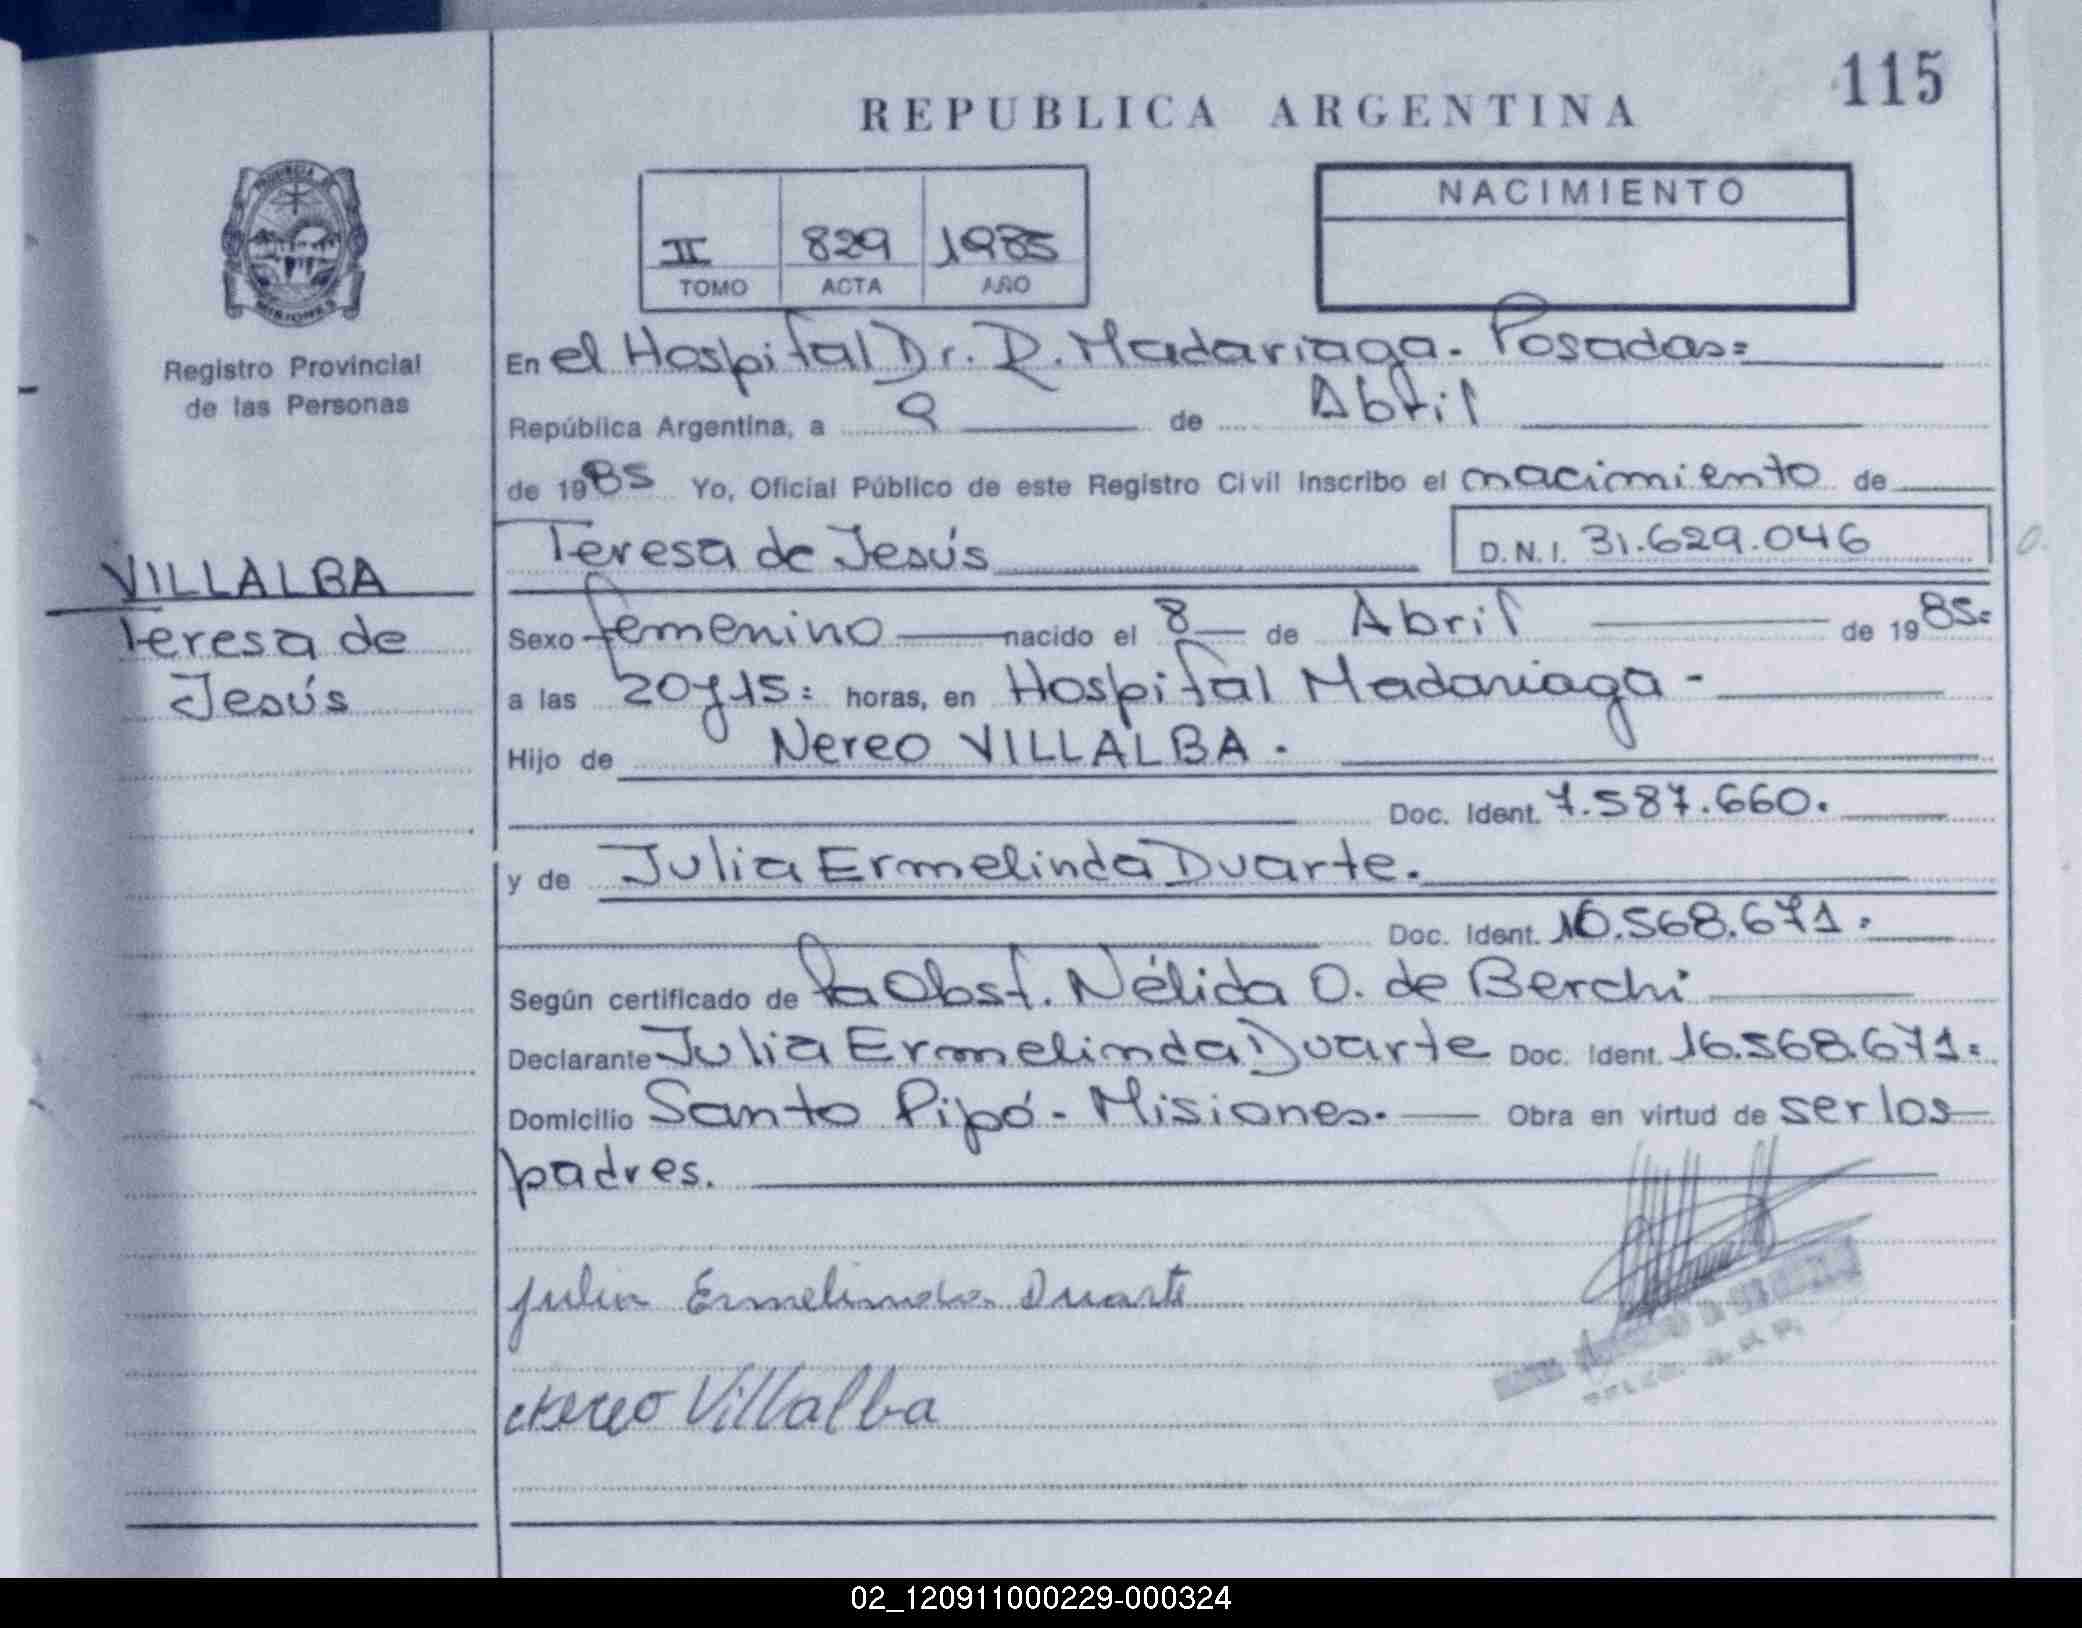 115
REPUBLICA ARGENTINA
PROVINCIA DE
MISIONES
Registro Provincial
de las Personas
II 829 1985
TOMO ACTA AÑO
NACIMIENTO
En el Hospital Dr. R. Madariaga. Posadas=
República Argentina, a 9 de Abril
de 1985 Yo, Oficial Público de este Registro Civil inscribo el nacimiento de
Teresa de Jesús D.N.I. 31.629.046
VILLALBA
Teresa de
Jesús
Sexo femenino nacido el 8 de Abril de 1985=
a las 20y15= horas, en Hospital Madariaga -
Hijo de Nereo VILLALBA.
Doc. Ident. 7.587.660.
y de Julia Ermelinda Duarte.
Doc. Ident. 16.568.671.
Según certificado de la Obst. Nélida O. de Berchi
Declarante Julia Ermelinda Duarte Doc. Ident. 16.568.671=
Domicilio Santo Pipó - Misiones. Obra en virtud de ser los
padres.
Julia Ermelinda Duarte
Nereo Villalba
02_120911000229-000324